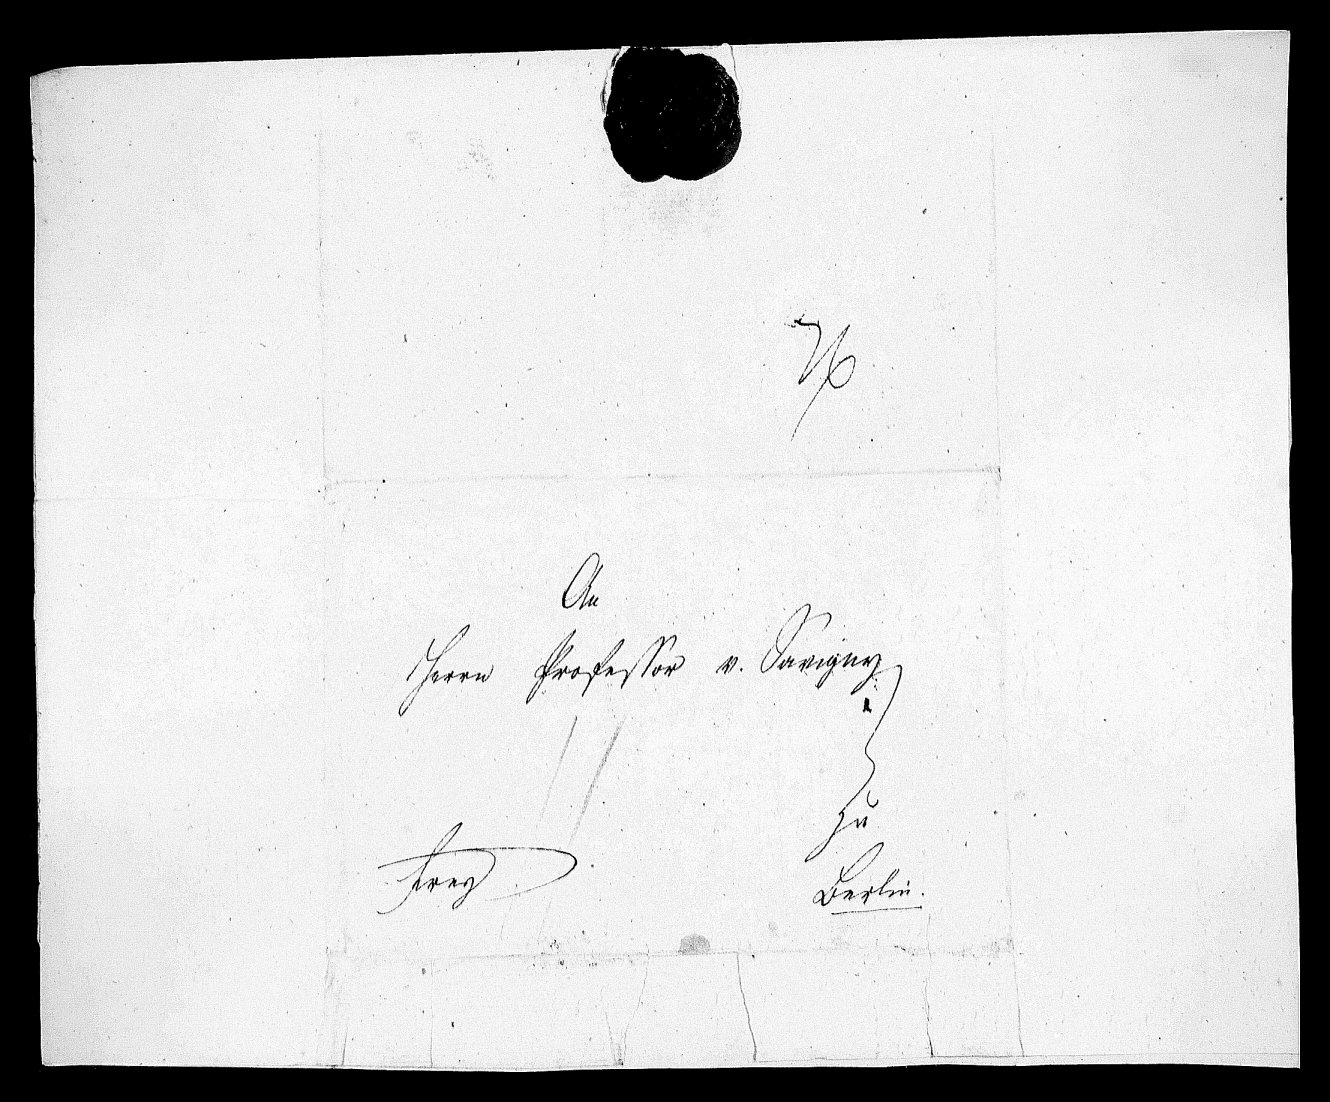 An
Herrn Professor v. Savigny
zu
Berlin.
frey